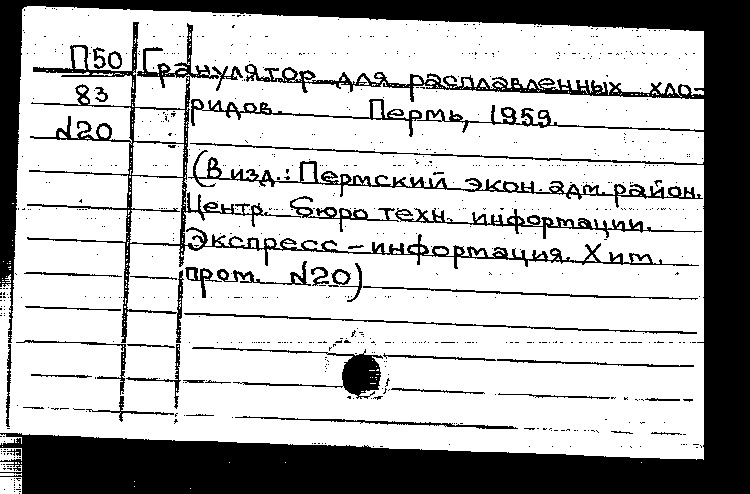 П50 Гранулятор для расплавленных хло-
83 ридов. Пермь, 1959.
N20
(В изд.: Пермский экон. адм. район.
Центр. бюро техн. информации.
Экспресс-информация. Хим.
пром. N20)